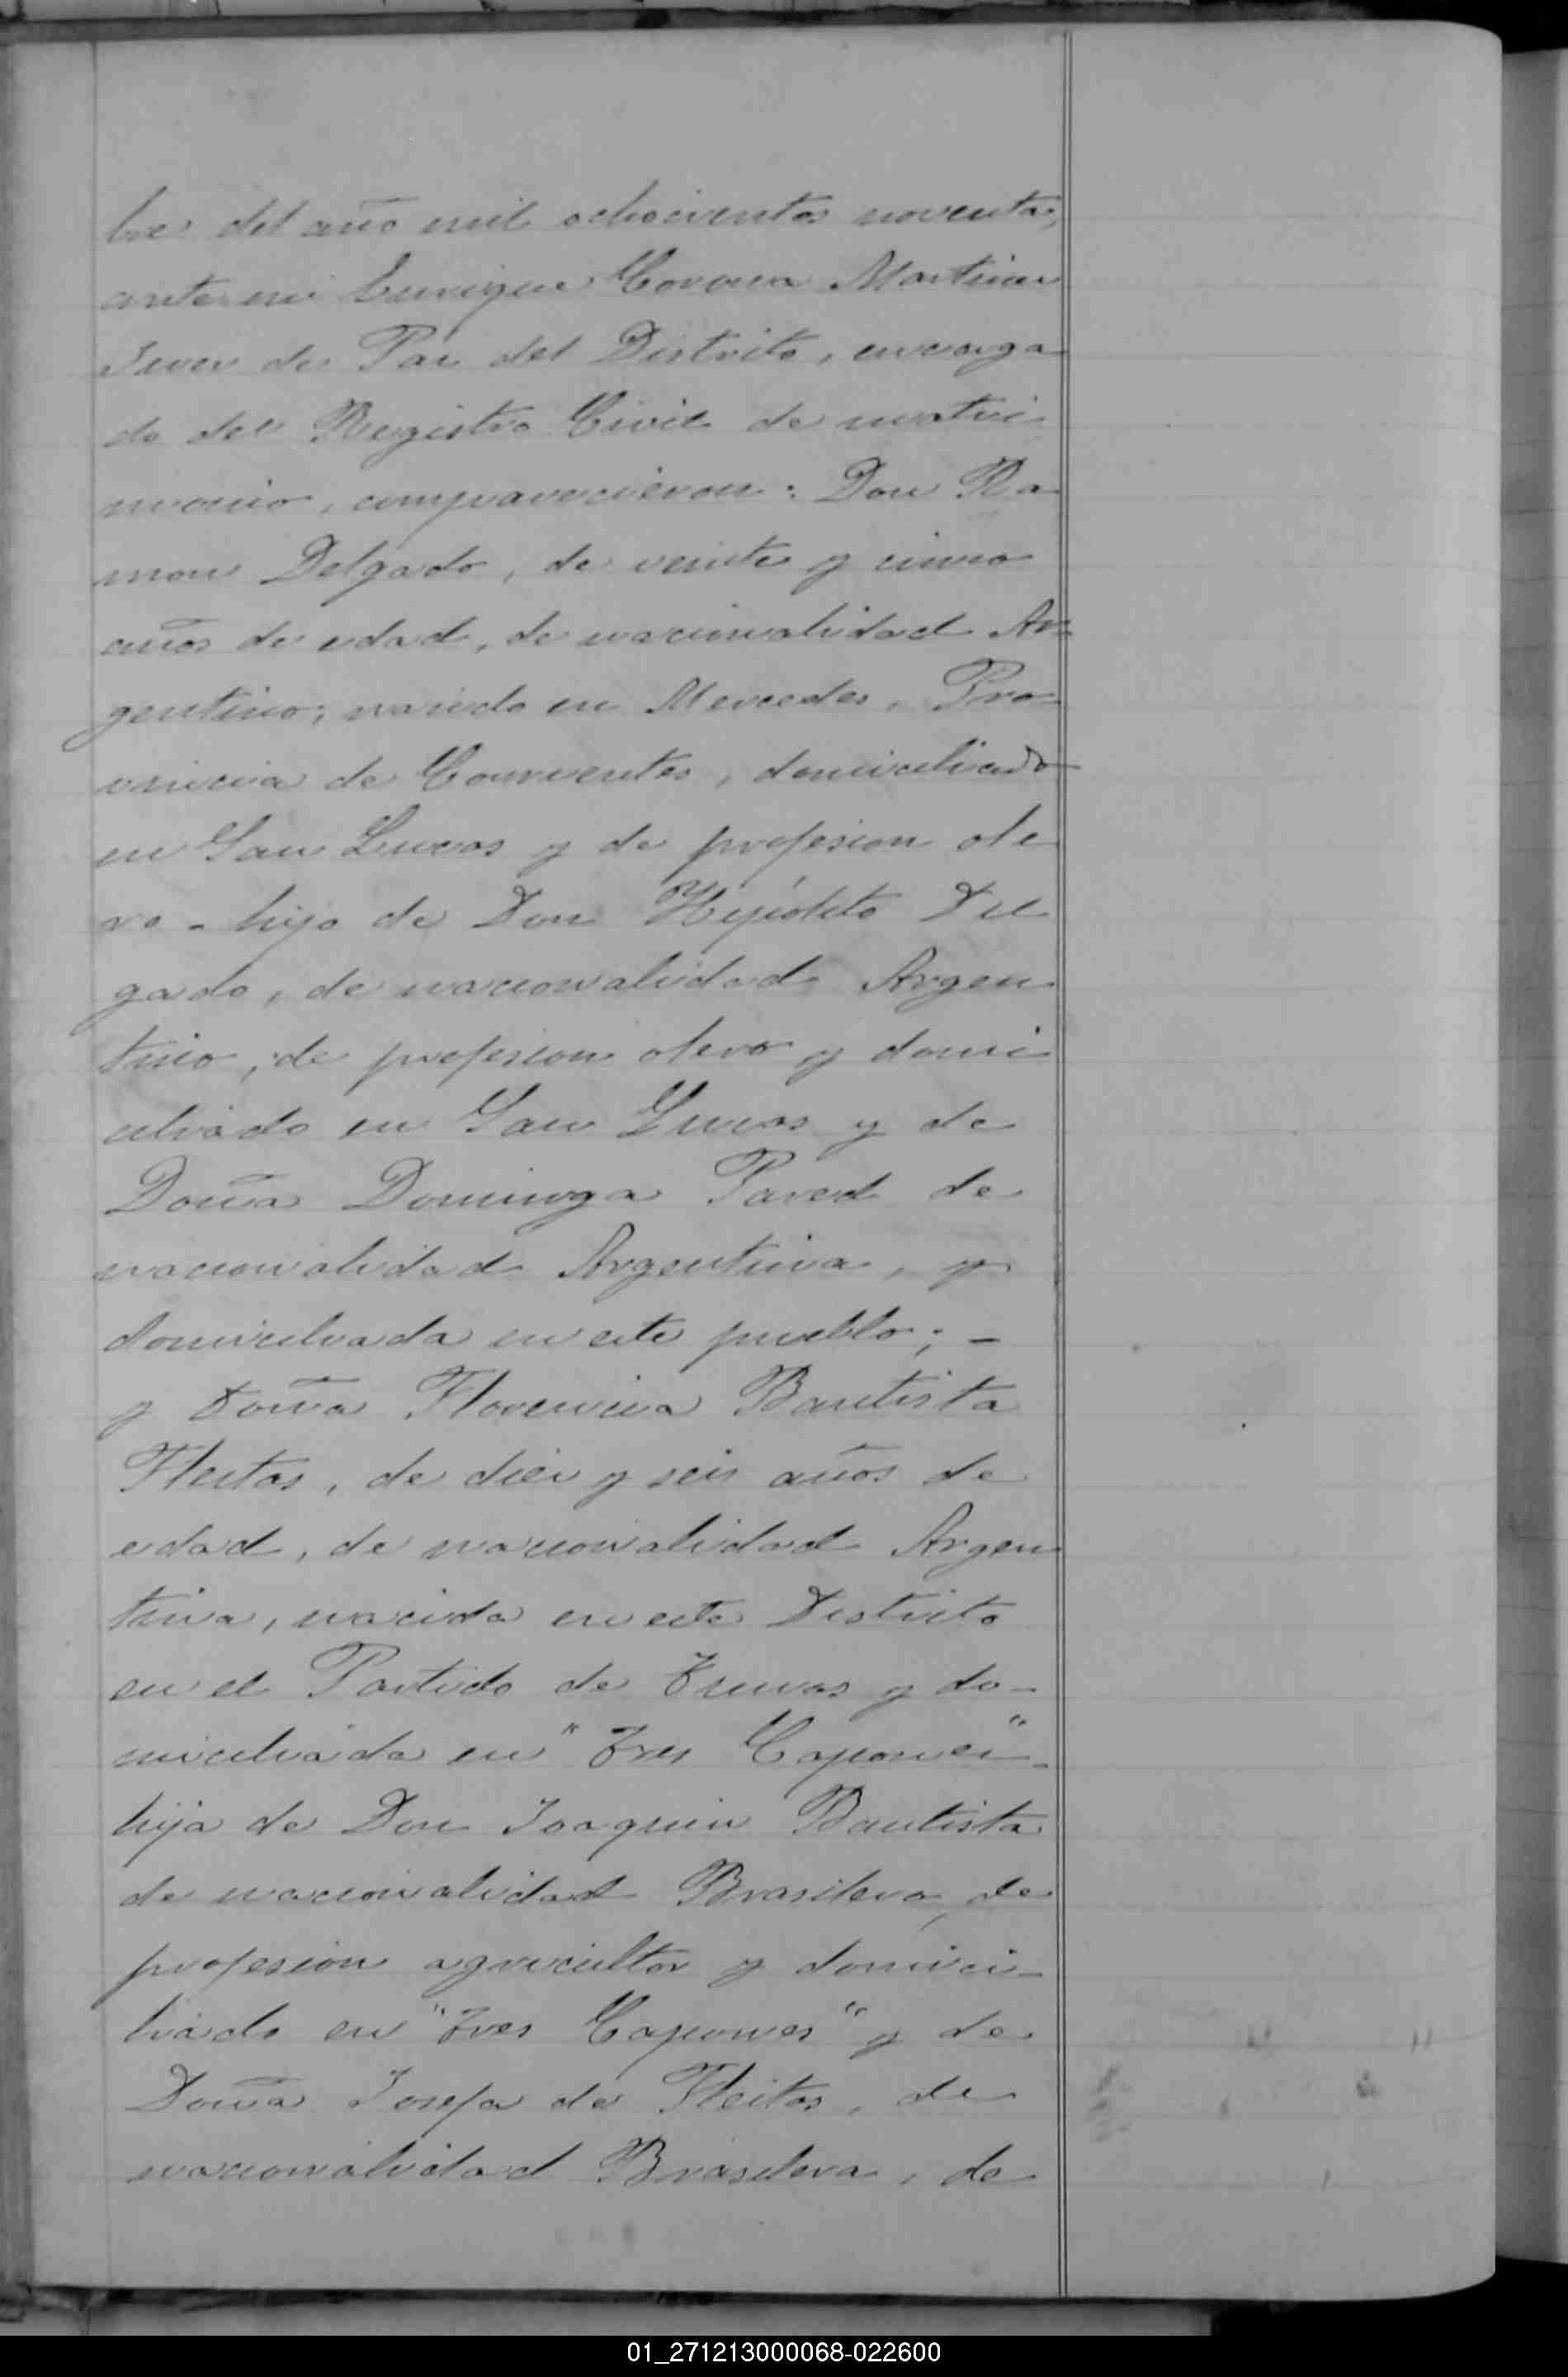 bre del año mil ochocientos noventa,
ante mi Enrique Corona Martinez
Juez de Paz del Distrito, encarga
do del Registro Civil de matri
monio, comparecieron: Don Ra
mon Delgado, de veinte y cinco
años de edad, de nacionalidad Ar
gentino, nacido en Mercedes, Pro
vincia de Corrientes, domiciliado
en San Lucas y de profesion ole
ro - hijo de Don Hipólito Del
gado, de nacionalidad Argen
tino, de profesion olero y domi
ciliado en San Lucas y de
Doña Dominga Pared de
nacionalidad Argentina, y
domiciliada en este pueblo; -
y Doña Florencia Bautista
Fleitas, de diez y seis años de
edad, de nacionalidad Argen
tina, nacida en este Distrito
en el Partido de y do-
miciliada en "Tres Capones"-
hija de Don Joaquin Bautista
de nacionalidad Brasilera, de
profesion agricultor y domici-
liado en "Tres Capones" y de
Doña Josefa de Fleitas, de
nacionalidad Brasilera, de
01_271213000068-022600